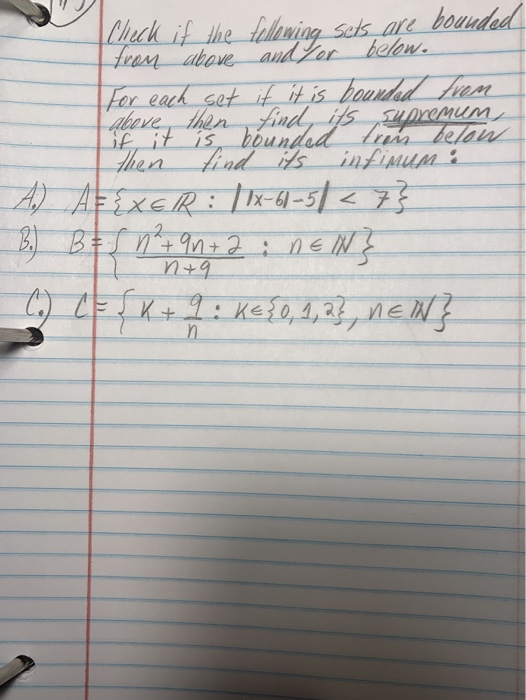 Check if the following sets are bounded
from above and/or below.
For each set if it is bounded from
above then find its supremum,
if it is bounded from below
then find its infimum:
A.) A = {x ∈ ℝ : ||x-6|-5| < 7}
B.) B = { n²+9n+2 / n+9 : n ∈ ℕ }
C.) C = { K + 9/n : K ∈ {0, 1, 2}, n ∈ ℕ }